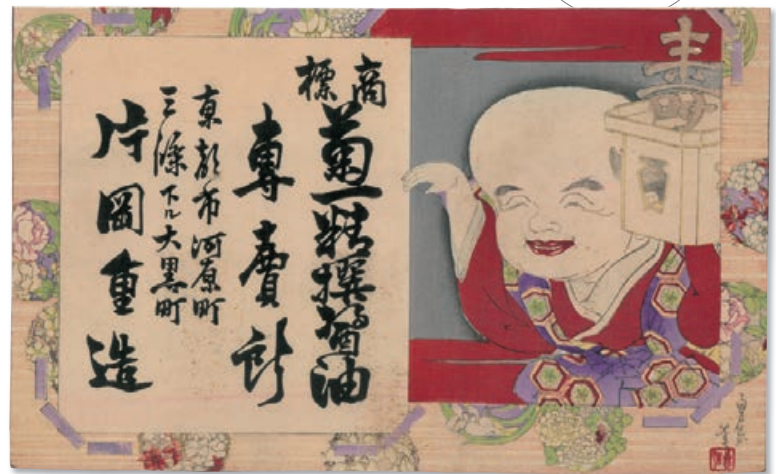 商標
菊一精撰醤油
専賣所
京都市河原町
三條下ル大黒町
片岡重造